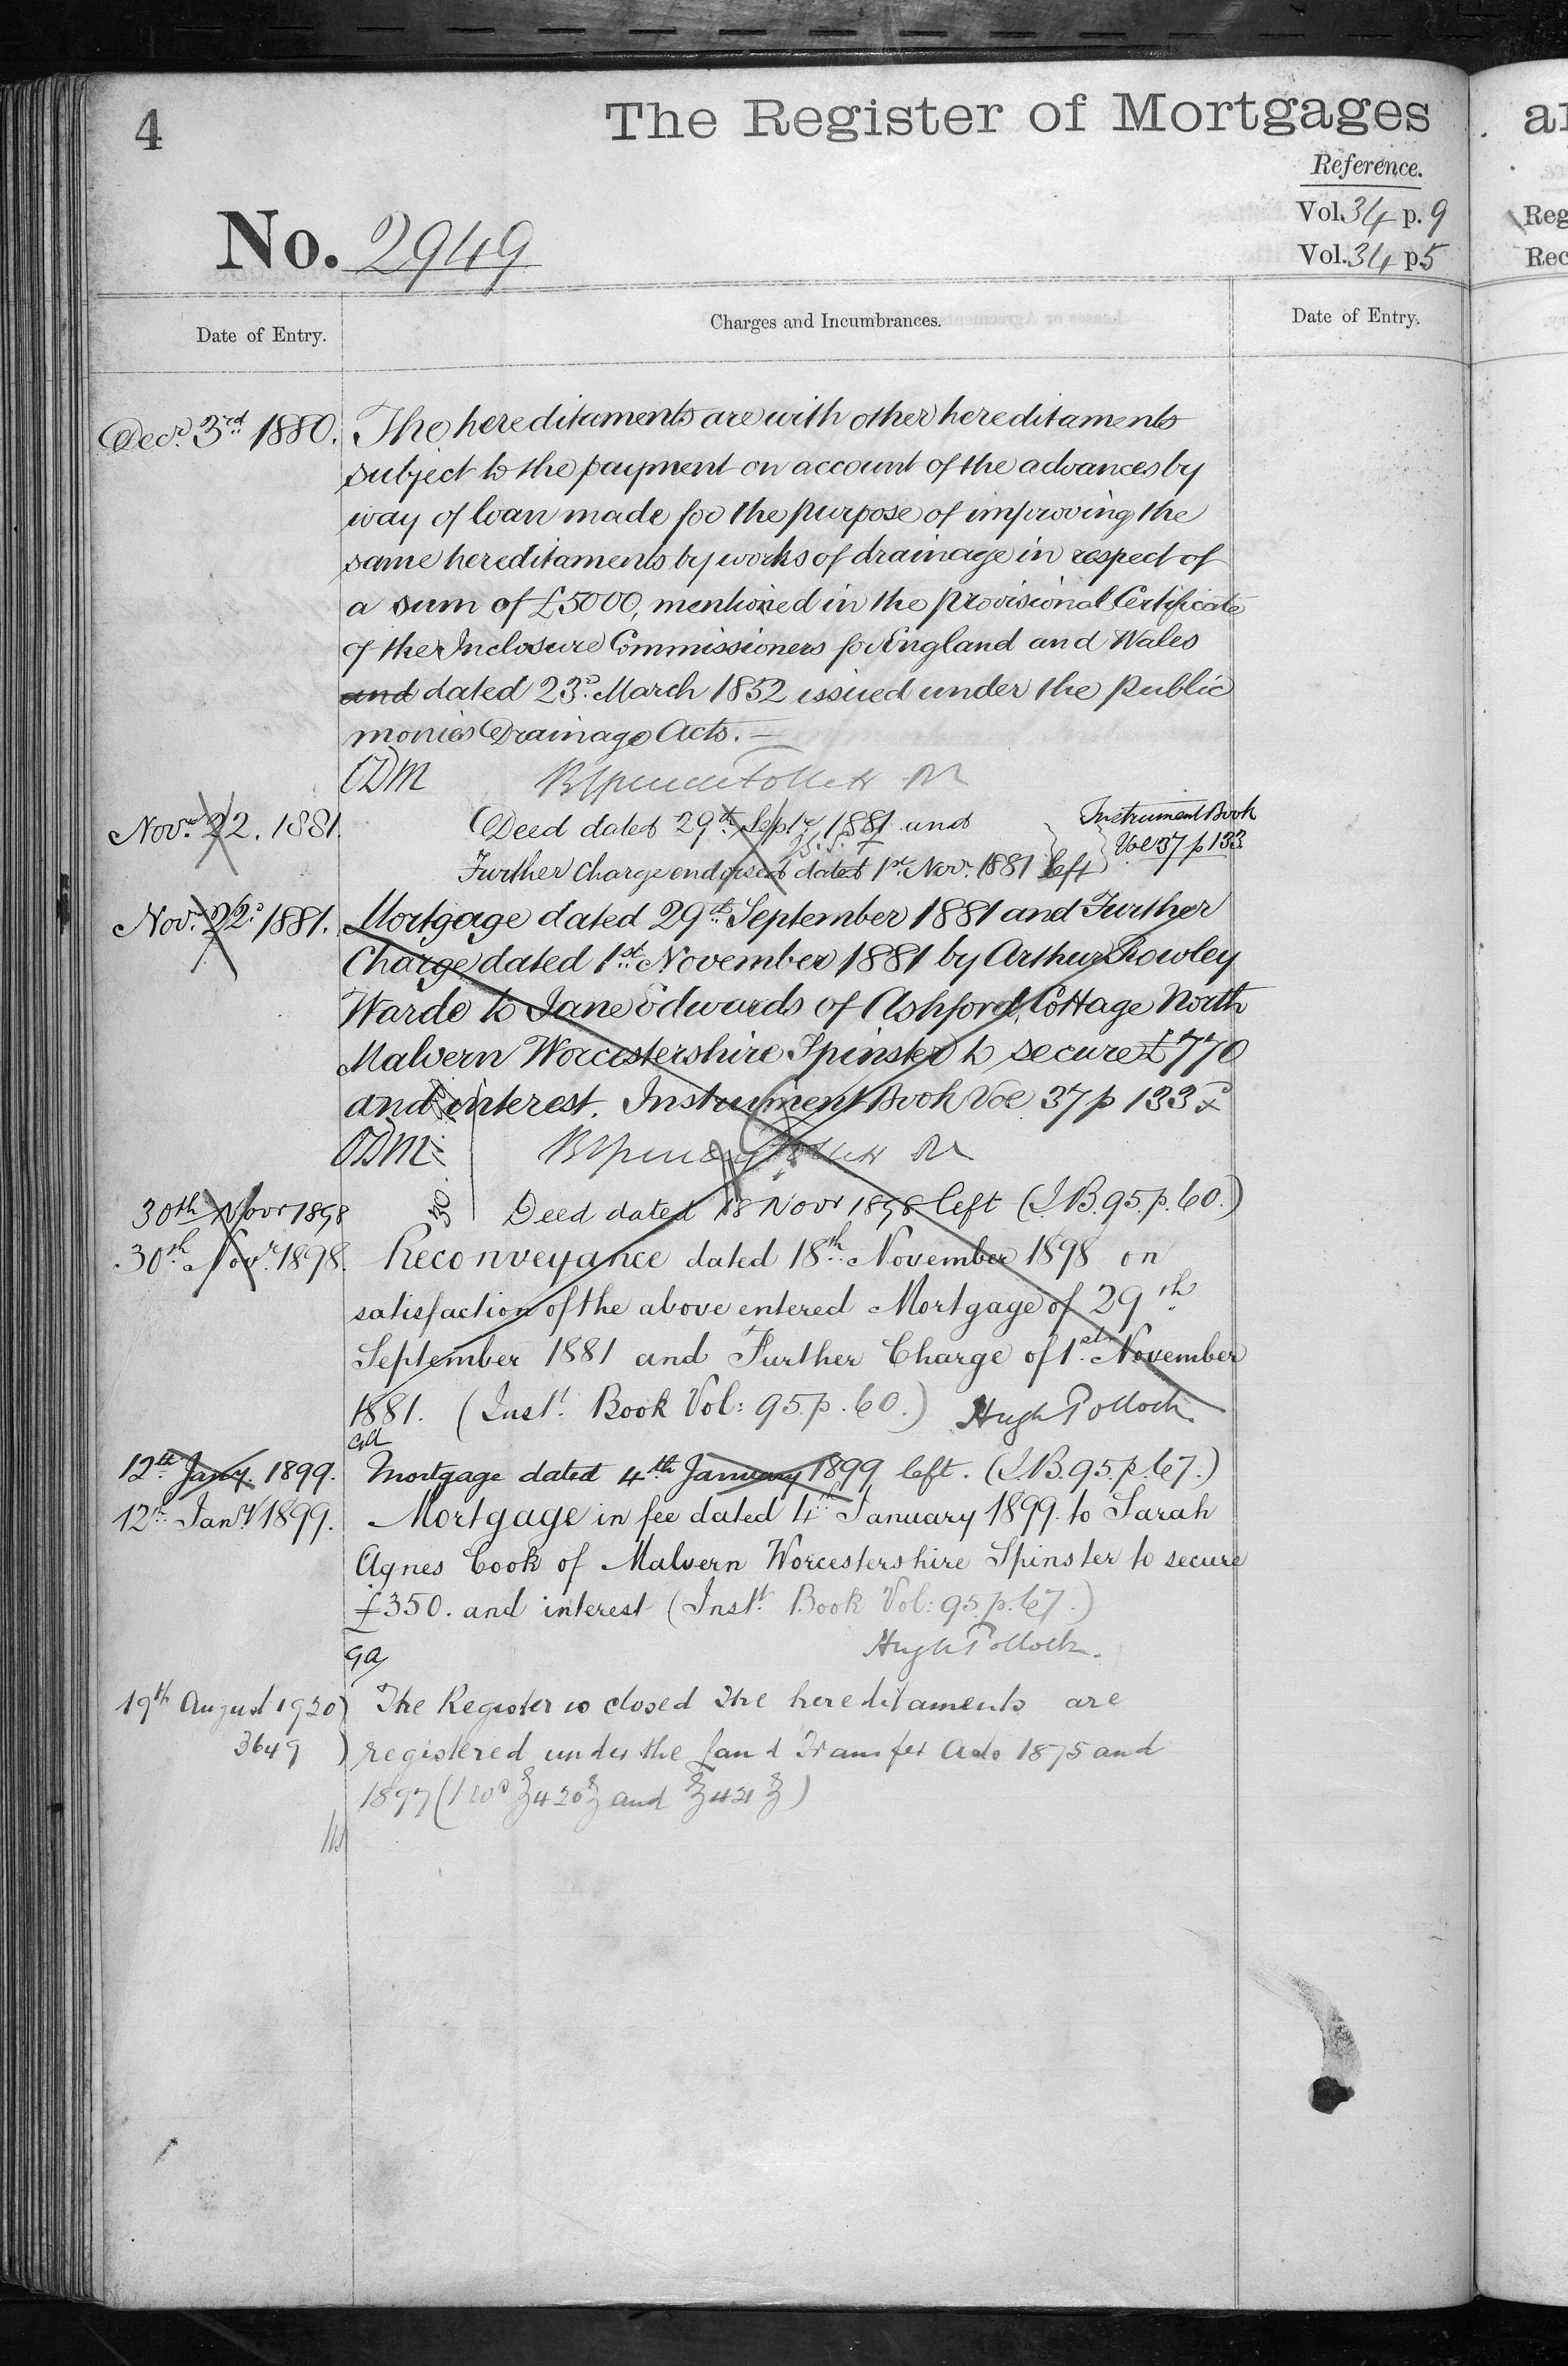 4
The Register of Mortgages
Reference.
No. 2949
Vol. 34 p. 9
Vol. 34 p 5
Reg
Rec
Date of Entry.
Charges and Incumbrances.
Date of Entry.
Decr. 3rd 1880. The hereditaments are with other hereditaments
subject to the payment on account of the advances by
way of loan made for the purpose of improving the
same hereditaments by works of drainage in respect of
a sum of £5000, mentioned in the provisional Certificate
of the Inclosure Commissioners for England and Wales
and dated 23d. March 1852 issued under the public
monies Drainage Acts. —
ODM
Novr. 22. 1881. Deed dated 29th Septr 1881 and
Instrument Book
Vol 37 p 133
Further Charge endorsed dated 1st Novr. 1881 left
Novr. 22d. 1881. Mortgage dated 29th September 1881 and Further
Charge dated 1st November 1881 by Arthur Rowley
Warde to Jane Edwards of Ashford Cottage North
Malvern Worcestershire Spinster to secure £770
and interest. Instrument Book Vol 37 p 133
ODM
30th Novr 1898 Deed dated 18 Novr 1898 left (I.B. 95. p. 60.)
30th Novr. 1898. Reconveyance dated 18th November 1898 on
satisfaction of the above entered Mortgage of 29th
September 1881 and Further Charge of 1st. November
1881. (Inst. Book Vol: 95. p. 60.) Hugh Pollock
12th Jany. 1899. Mortgage dated 4th January 1899 left. (I.B. 95. p. 67.)
12th Jany 1899. Mortgage in fee dated 4th January 1899. to Sarah
Agnes Cook of Malvern Worcestershire Spinster to secure
£350. and interest (Inst. Book Vol: 95. p. 67.)
GA Hugh Pollock.
19th August 1920 The Register is closed The hereditaments are
3649 registered under the Land Transfer Acts 1875 and
1897